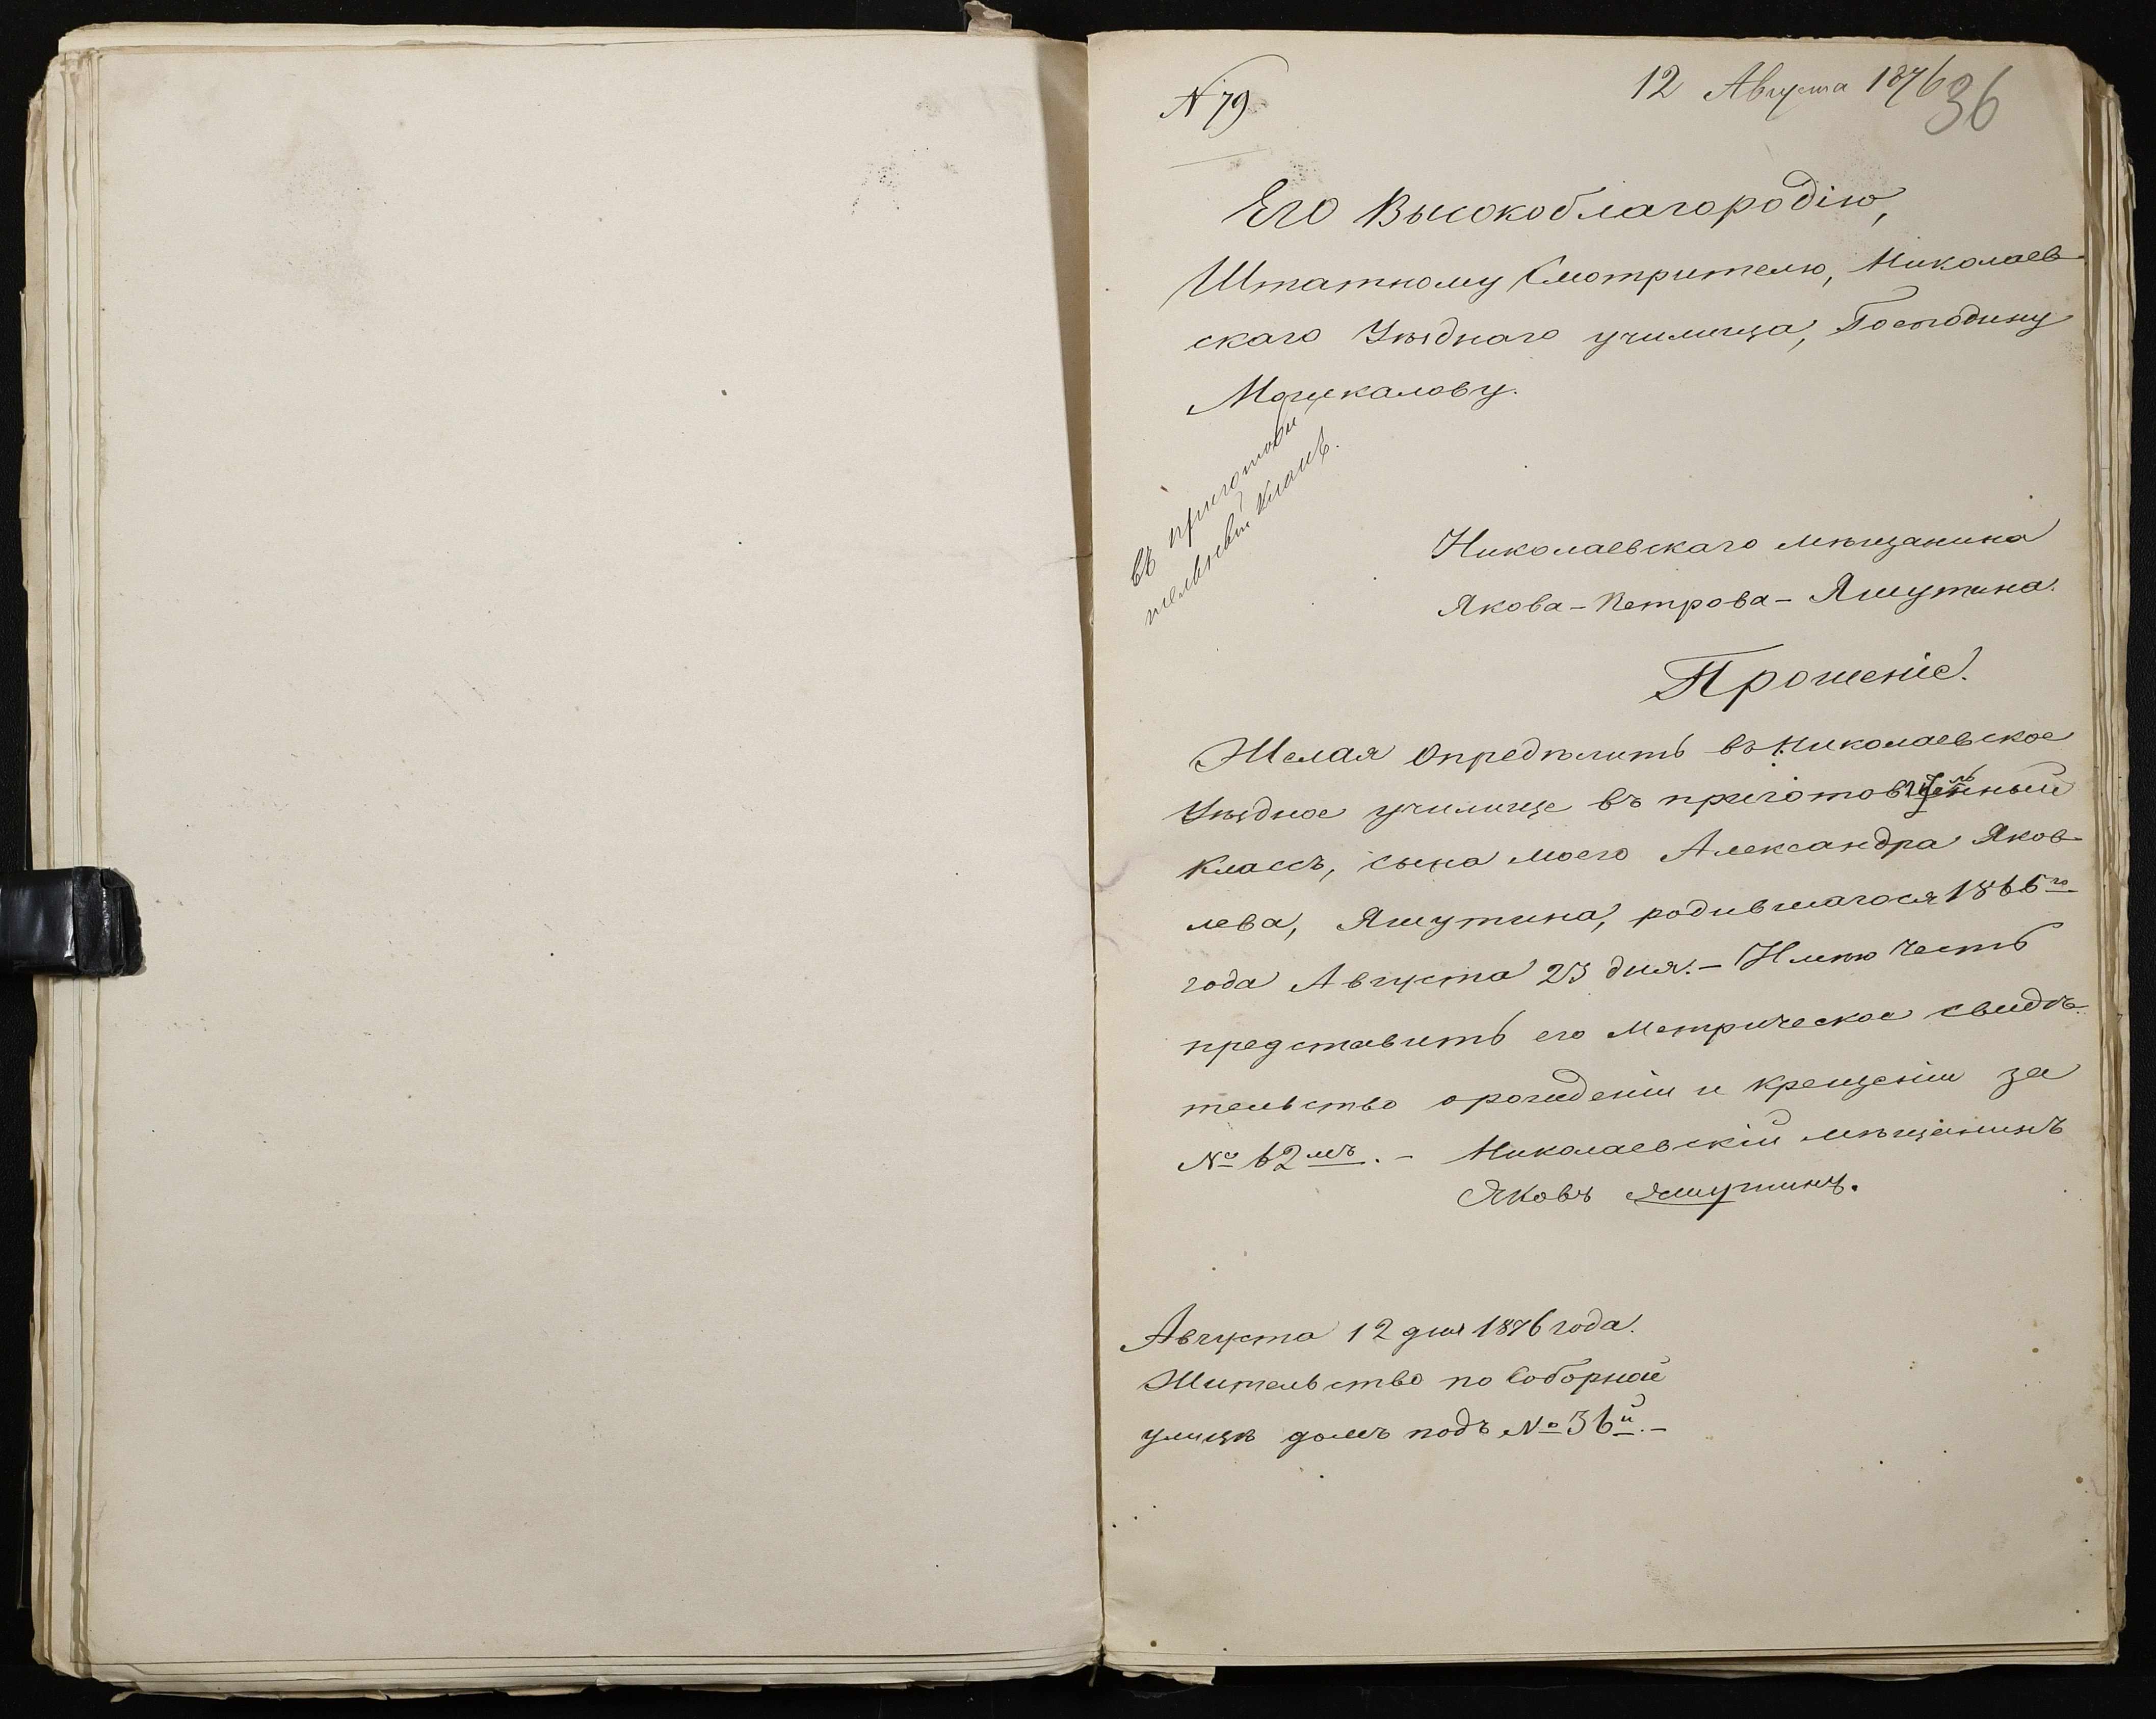 N 79
12 Августа 1876
36
Его Высокоблагородію,
Штатному Смотрителю, Николаев-
скаго Уѣзднаго училища, Господину
Мощкалову.
въ приготови
тельный классъ.
Николаевскаго мѣщанина
Якова - Петрова - Яшутина.
Прошеніе.
Желая Опредѣлить въ Николаевское
Уѣздное училище въ приготовительный
классъ, сына моего Александра Яков-
лева, Яшутина, родившагося 1866го
года Августа 23 дня. - Имѣю честь
представить его Метрическое свидѣ-
тельство о рожденіи и крещеніи за
№ 62мъ. - Николаевскій мѣщанинъ
Яковъ Яшутинъ.
Августа 12 дня 1876 года.
Жительство по Соборной
улицѣ домъ подъ № 36й. -